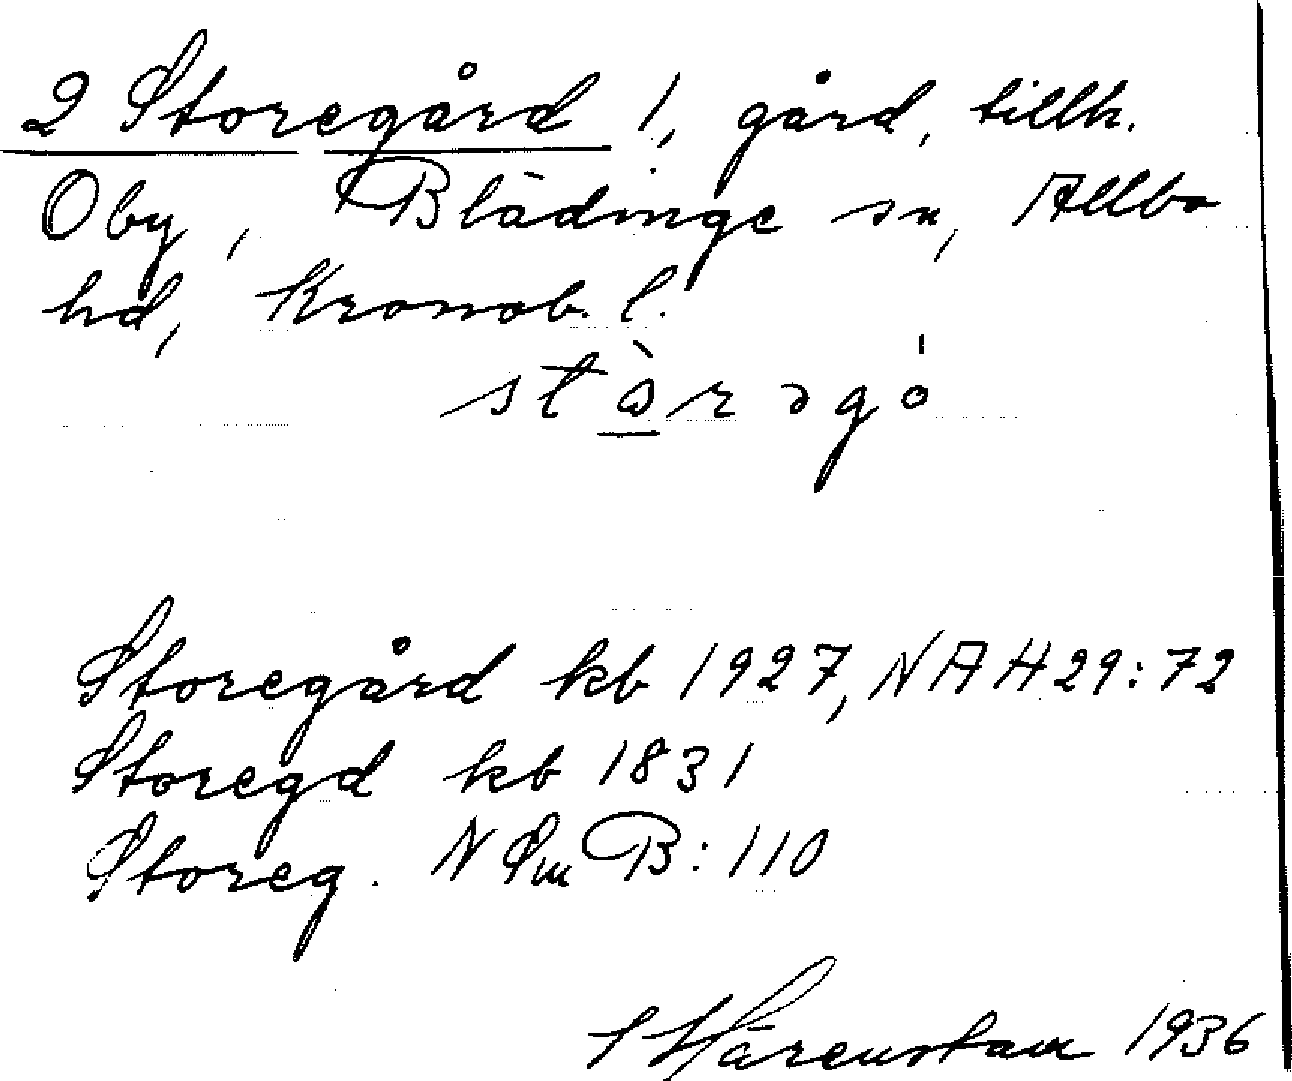 2 Storegård 1, gård, tillh.
Oby, Blädinge sn, Allbo
hd, Kronob. l.
stòrəgó
Storegård kb 1927, NAH29:72
Storegd kb 1831
Storeg. NSmB:110
S Härenstam 1936